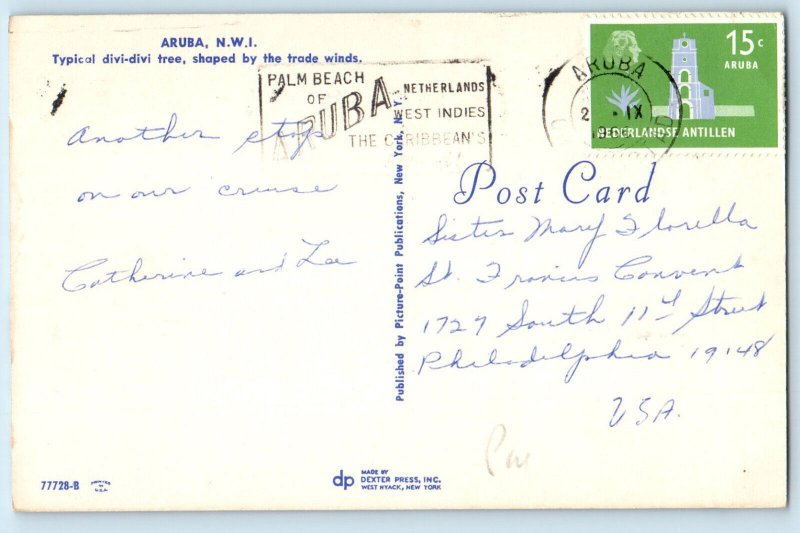 ARUBA, N.W.I.
Typical divi-divi tree, shaped by the trade winds.
PALM BEACH
OF
ARUBA
NETHERLANDS
WEST INDIES
THE CARIBBEAN'S
ARUBA
IX
15c
ARUBA
NEDERLANDSE ANTILLEN
Another stop
on our cruise
Catherine and Lee
Published by Picture-Point Publications, New York, N.Y.
Post Card
Sister Mary Florella
St. Francis Convent
1727 South 11th Street
Philadelphia 19148
USA.
77728-B
PRINTED IN U.S.A.
dp
MADE BY
DEXTER PRESS, INC.
WEST NYACK, NEW YORK